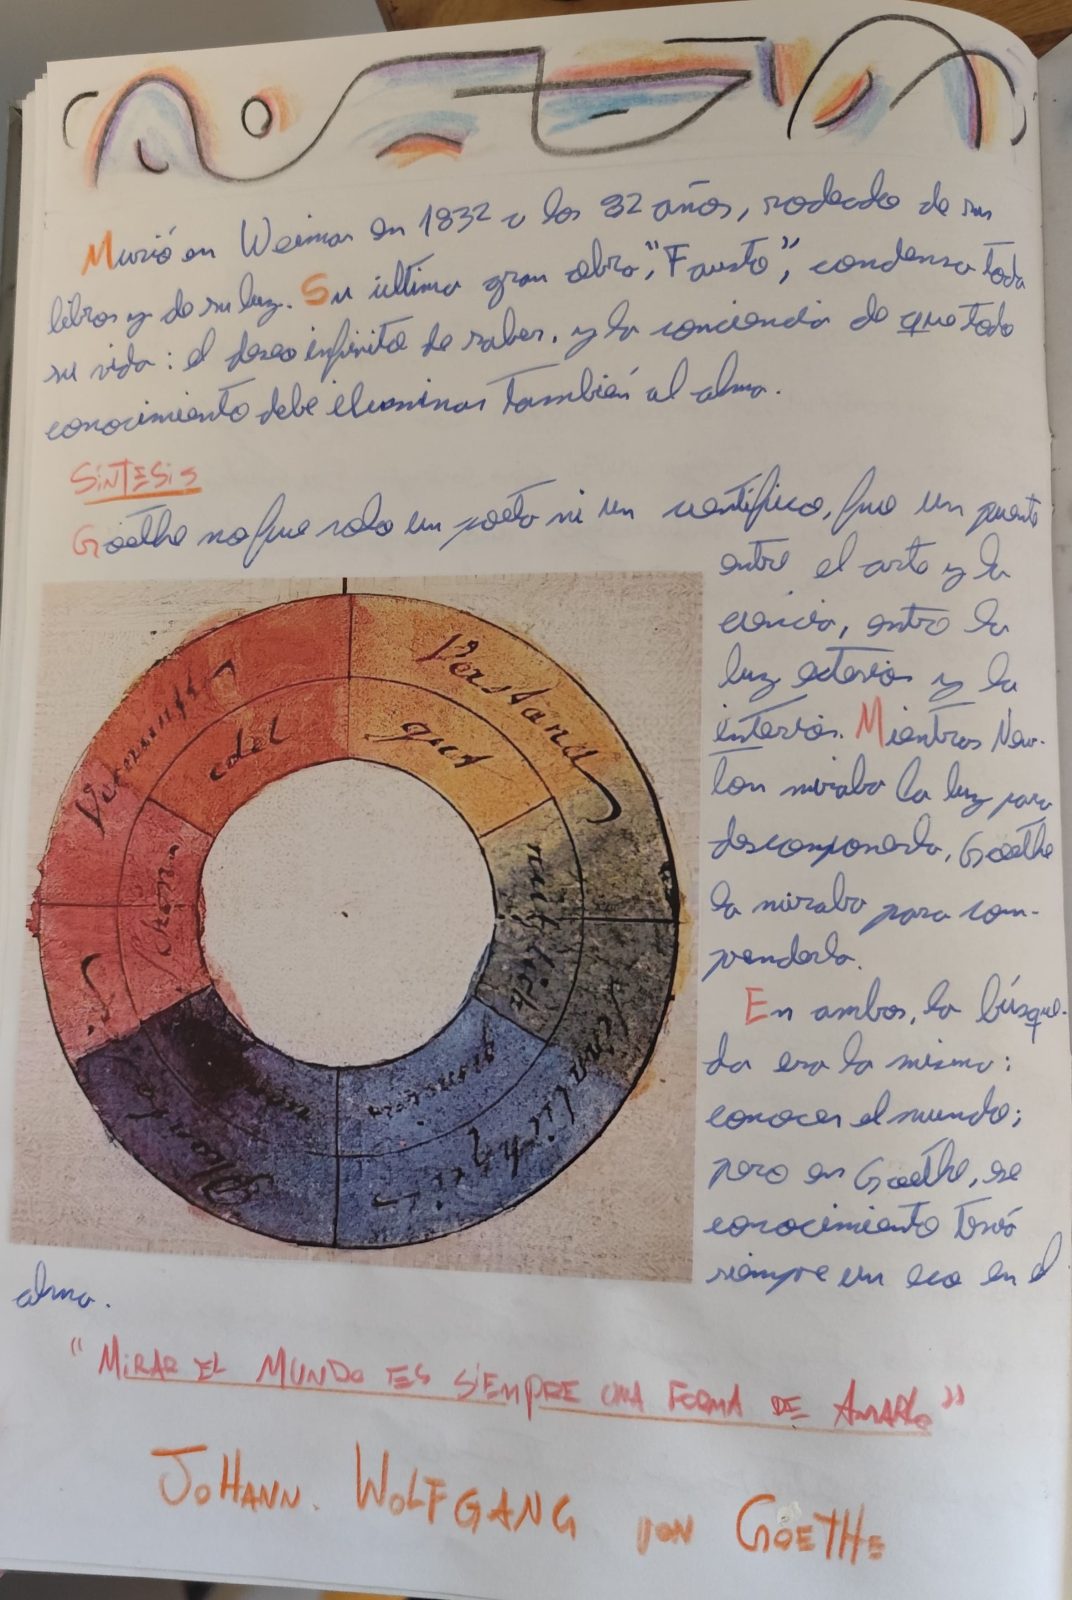 Murió en Weimar en 1832 a los 82 años, rodeado de sus
libros y de su luz. Su última gran obra, "Fausto", condensa toda
su vida: el deseo infinito de saber, y la conciencia de que todo
conocimiento debe iluminar también al alma.
SÍNTESIS
Goethe no fue solo un poeta ni un científico, fue un puente
entre el arte y la
ciencia, entre la
luz exterior y la
interior. Mientras New-
ton miraba la luz para
descomponerla, Goethe
la miraba para com-
prenderla.
En ambos, la búsque-
da era la misma:
conocer el mundo;
pero en Goethe, se
conocimiento tenía
siempre un eco en el
alma.
Vernunft
Verstand
edel
gut
schön
nützlich
gemein
Sinnlichkeit
"MIRAR EL MUNDO ES SIEMPRE UNA FORMA DE AMARLO"
JOHANN. WOLFGANG VON GOETHE